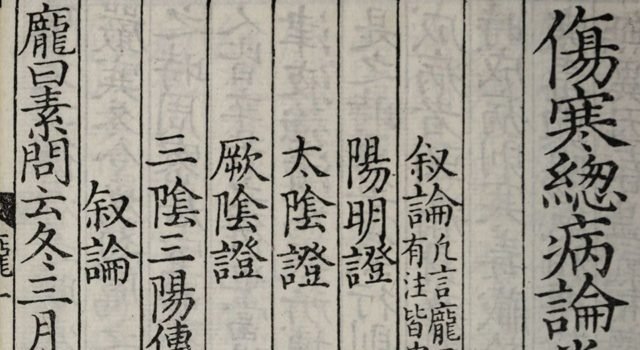 傷寒總病論
叙論凡言龐有注皆
陽明證
太陰證
厥陰證
三陰三陽傳
叙論
龐曰素問云冬三月